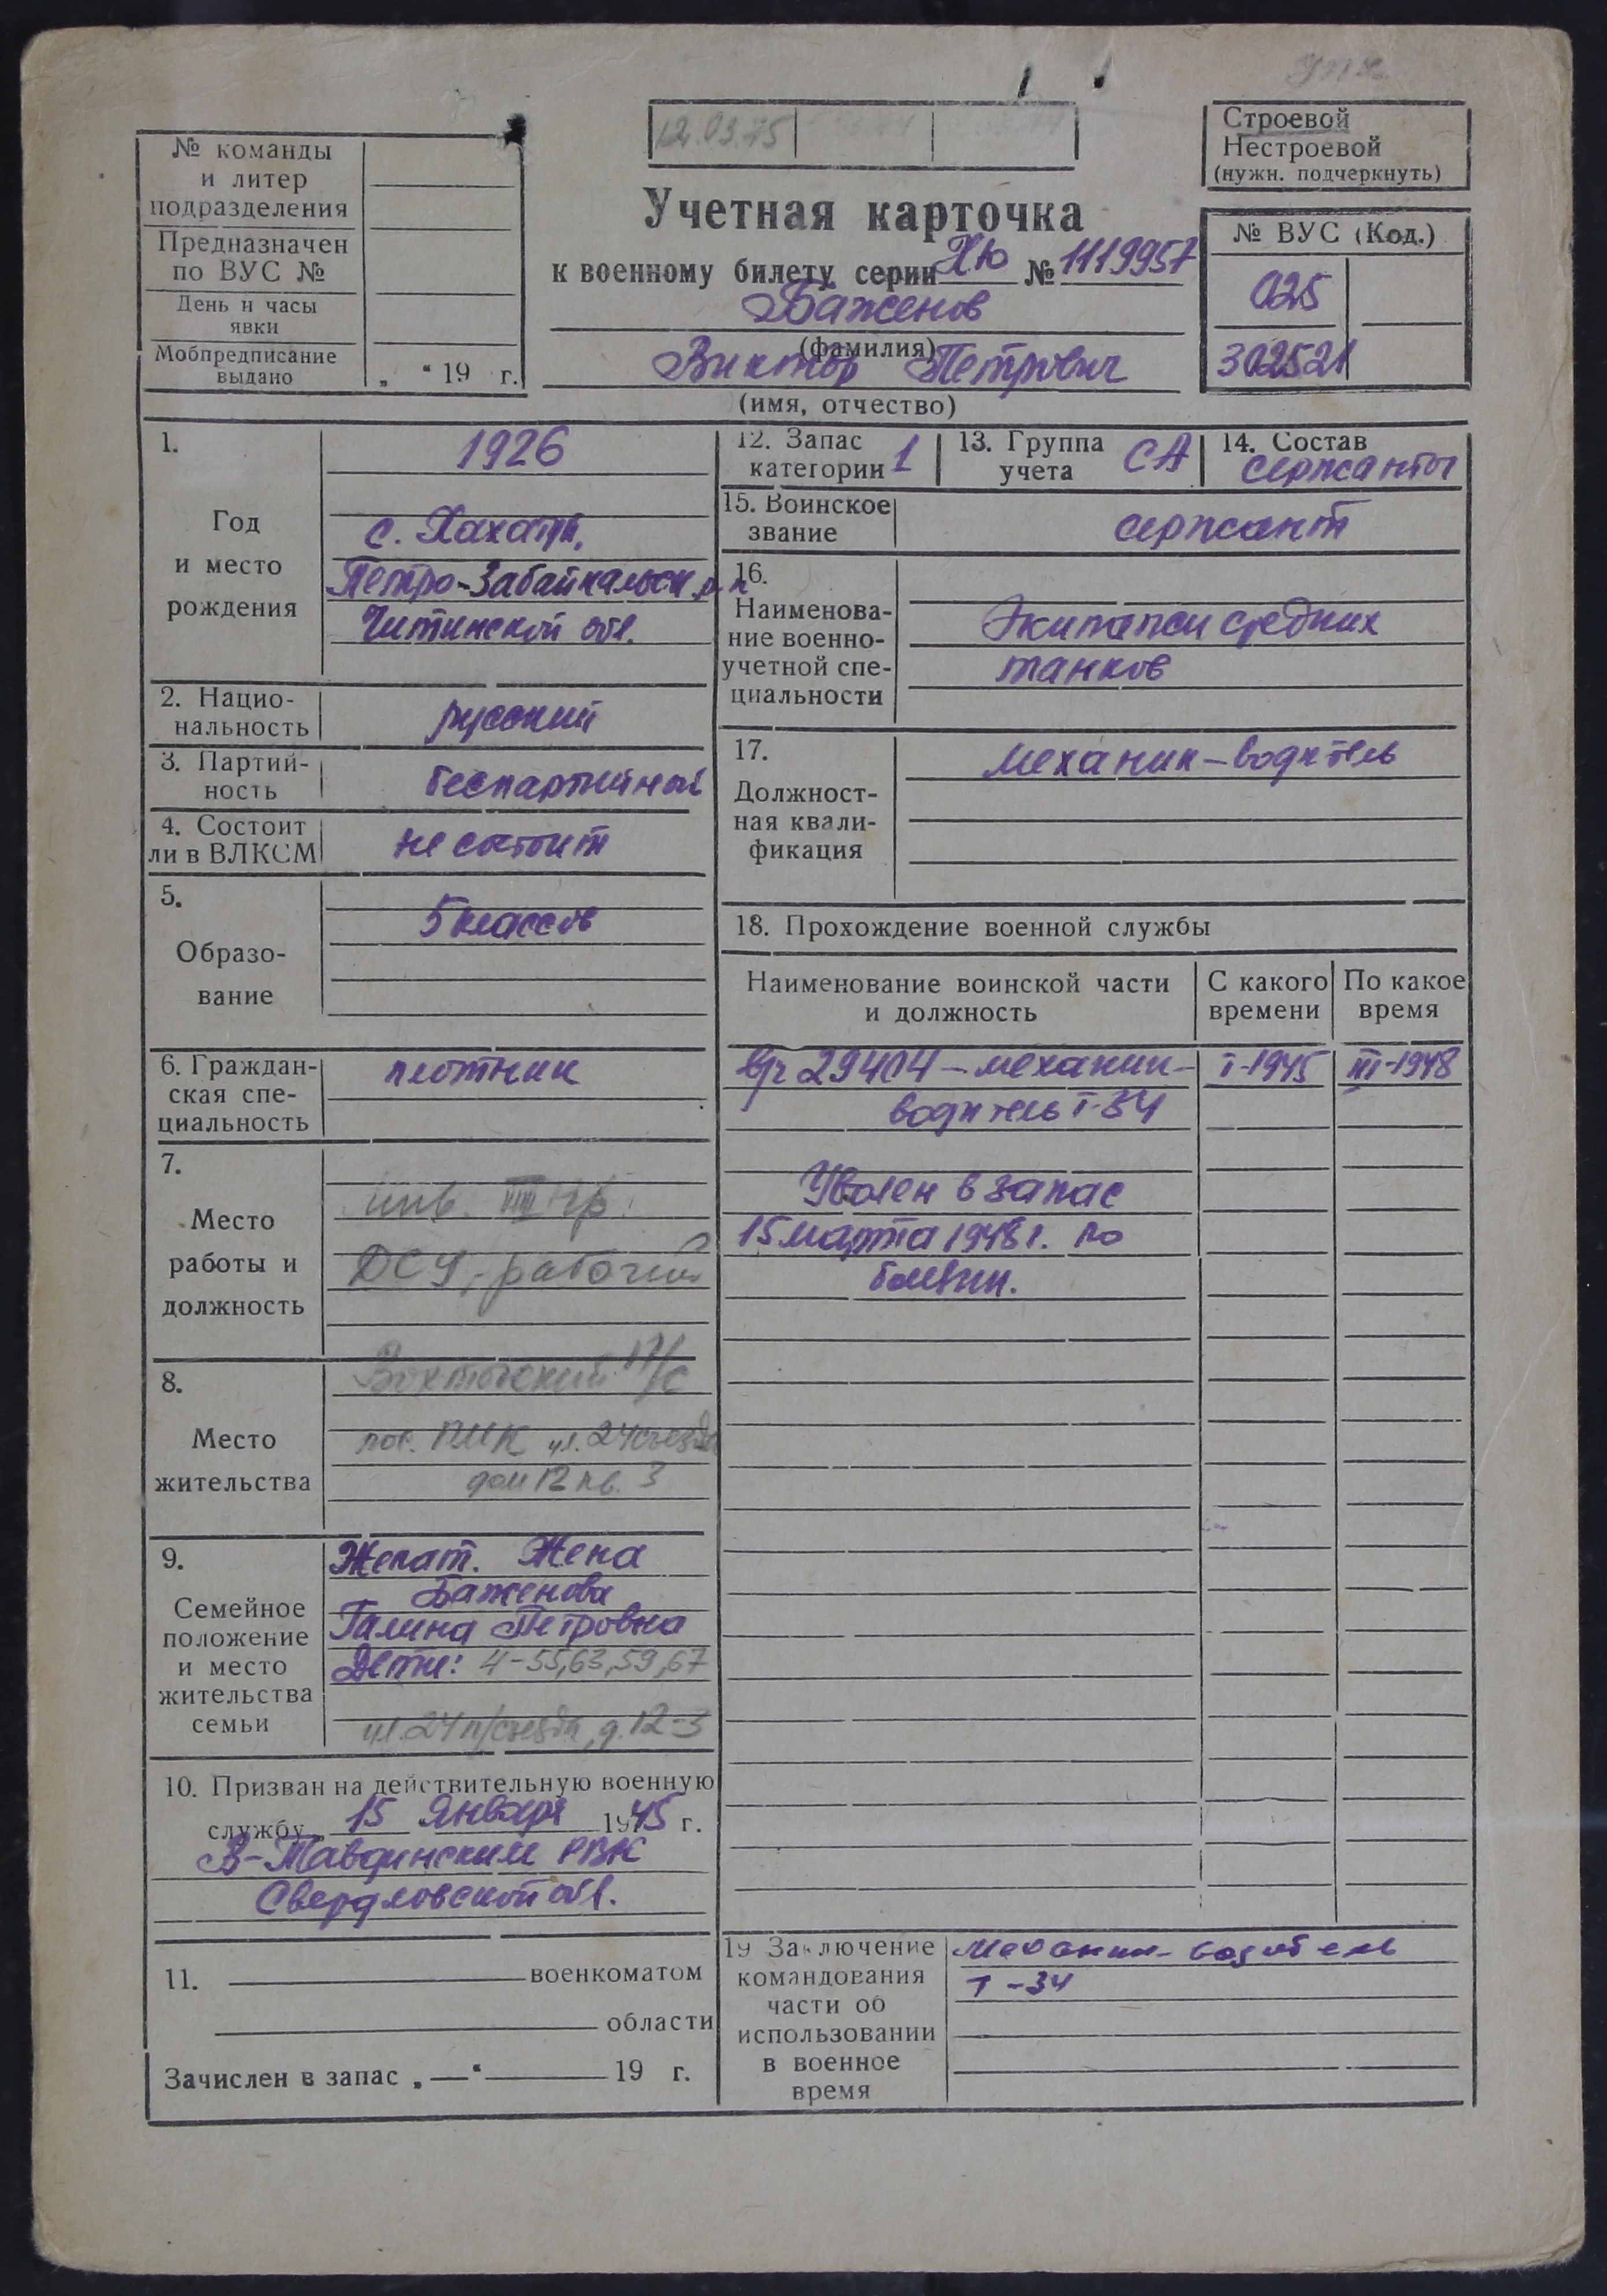 12.03.75
Строевой
Нестроевой
(нужн. подчеркнуть)
№ команды
и литер
подразделения
Предназначен
по ВУС №
День и часы
явки
Мобпредписание
выдано
„ “ 19 г.
Учетная карточка
к военному билету серии НЮ № 1119957
Баженов
(фамилия)
Виктор Петрович
(имя, отчество)
№ ВУС (Код.)
025
302521
1.
Год
и место
рождения
1926
с. Хахатуй,
Петро-Забайкальск. р-н
Читинской обл.
2. Нацио-
нальность
русский
3. Партий-
ность
беспартийный
4. Состоит
ли в ВЛКСМ
не состоит
5.
Образо-
вание
5 классов
6. Граждан-
ская спе-
циальность
плотник
7.
Место
работы и
должность
инв. III гр.
ДСУ, рабочий
8.
Место
жительства
с/с
пос. ПМК ул. 24 съезда
дом 12 кв. 3
9.
Семейное
положение
и место
жительства
семьи
Женат. Жена
Баженова
Галина Петровна
Дети: 4-55,63,59,67
ул. 24 п/съезда, д. 12-3
10. Призван на действительную военную
службу 15 января 1945 г.
В-Тавдинским РВК
Свердловской обл.
11. военкоматом
области
Зачислен в запас „—“ 19 г.
12. Запас
категории 1
13. Группа
учета СА
14. Состав
сержанты
15. Воинское
звание
сержант
16.
Наименова-
ние военно-
учетной спе-
циальности
Экипажи средних
танков
17.
Должност-
ная квали-
фикация
механик-водитель
18. Прохождение военной службы
Наименование воинской части
и должность
С какого
времени
По какое
время
в/ч 29404 - механик- I-1945 III-1948
водитель Т-34
Уволен в запас
15 марта 1948 г. по
болезни.
19 Заключение
командования
части об
использовании
в военное
время
Механик-водитель
Т-34